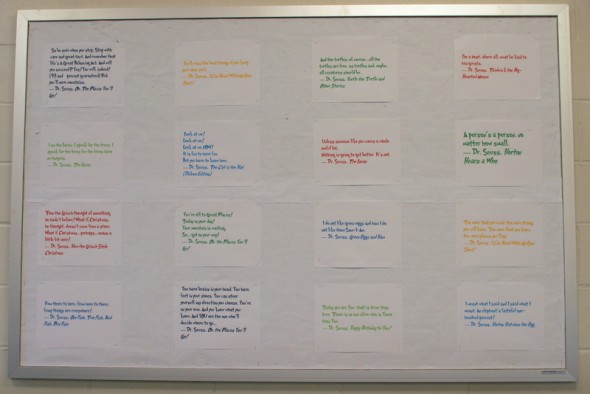 So be sure when you step, Step with
care and great tact. And remember that
life's A Great Balancing Act. And will
you succeed? Yes! You will, indeed!
(98 and ¾ percent guaranteed) Kid,
you'll move mountains.
― Dr. Seuss, Oh, The Places You'll
Go!
― Dr. Seuss, I Can Read With My Eyes
Shut!
And the turtles, of course... all the
turtles are free, as turtles and, maybe,
all creatures should be.
― Dr. Seuss, Yertle the Turtle and
Other Stories
For a host, above all, must be kind to
his guests.
― Dr. Seuss, Thidwick the Big-
Hearted Moose
I am the Lorax. I speak for the trees. I
speak for the trees for the trees have
no tongues.
― Dr. Seuss, The Lorax
Look at me!
Look at me!
Look at me NOW!
It is fun to have fun
But you have to know how.
― Dr. Seuss, The Cat in the Hat
Unless someone like you cares a whole
awful lot,
Nothing is going to get better. It's not.
― Dr. Seuss, The Lorax
A person's a person, no
matter how small.
― Dr. Seuss, Horton
Hears a Who
Then the Grinch thought of something
he hadn't before! What if Christmas,
he thought, doesn't come from a store.
What if Christmas...perhaps...means a
little bit more!
― Dr. Seuss, How the Grinch Stole
Christmas
You're off to Great Places!
Today is your day!
Your mountain is waiting,
So... get on your way!
― Dr. Seuss, Oh, the Places You'll
Go!
I do not like green eggs and ham. I do
not like them Sam-I-Am.
― Dr. Seuss, Green Eggs and Ham
The more that you read, the more things
you will know. The more that you learn,
the more places you'll go.
― Dr. Seuss, I Can Read With My Eyes
Shut!
From there to here, from here to there,
funny things are everywhere!
― Dr. Seuss, One Fish, Two Fish, Red
Fish, Blue Fish
You have brains in your head. You have
feet in your shoes. You can steer
yourself any direction you choose. You're
on your own. And you know what you
know. And YOU are the one who'll
decide where to go...
― Dr. Seuss, Oh, the Places You'll
Go!
Today you are You, that is truer than
true. There is no one alive who is Youer
than You.
― Dr. Seuss, Happy Birthday to You!
I meant what I said and I said what I
meant. An elephant's faithful one-
hundred percent!
― Dr. Seuss, Horton Hatches the Egg